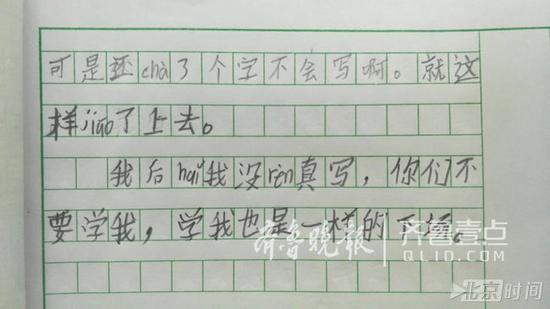 可是还chà了个字不会写啊。就这
样jiāo了上去。
我后hǎi我没rèn真写，你们不
要学我，学我也是一样的下场。
齐鲁晚报 齐鲁壹点
QLID.COM
北京时间